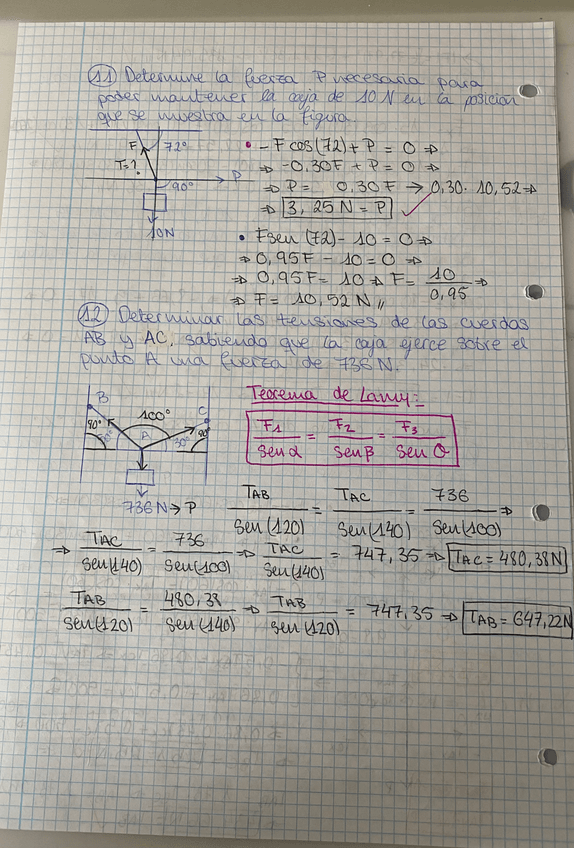 11 Determine la fuerza P necesaria para
poder mantener la caja de 10 N en la posición
que se muestra en la figura.
F 72°
T=?
P
90°
10N
• -F cos(72) + P = 0 ⇒
⇒ -0,30F + P = 0 ⇒
⇒ P = 0,30F → 0,30 · 10,52 ⇒
⇒ 3,25 N = P ✓
• F sen (72) - 10 = 0 ⇒
⇒ 0,95F - 10 = 0 ⇒
⇒ 0,95F = 10 ⇒ F = 10/0,95 ⇒
⇒ F = 10,52 N
12 Determinar las tensiones de las cuerdas
AB y AC, sabiendo que la caja ejerce sobre el
punto A una fuerza de 736 N.
B 100° C
90° A 30° 90°
736 N → P
Teorema de Lamy:
F1/sen α = F2/sen β = F3/sen θ
TAB/sen(120) = TAC/sen(140) = 736/sen(100) ⇒
⇒ TAC/sen(140) = 736/sen(100) ⇒ TAC/sen(140) = 747,35 ⇒ TAC = 480,38 N
TAB/sen(120) = 480,38/sen(140) ⇒ TAB/sen(120) = 747,35 ⇒ TAB = 647,22 N